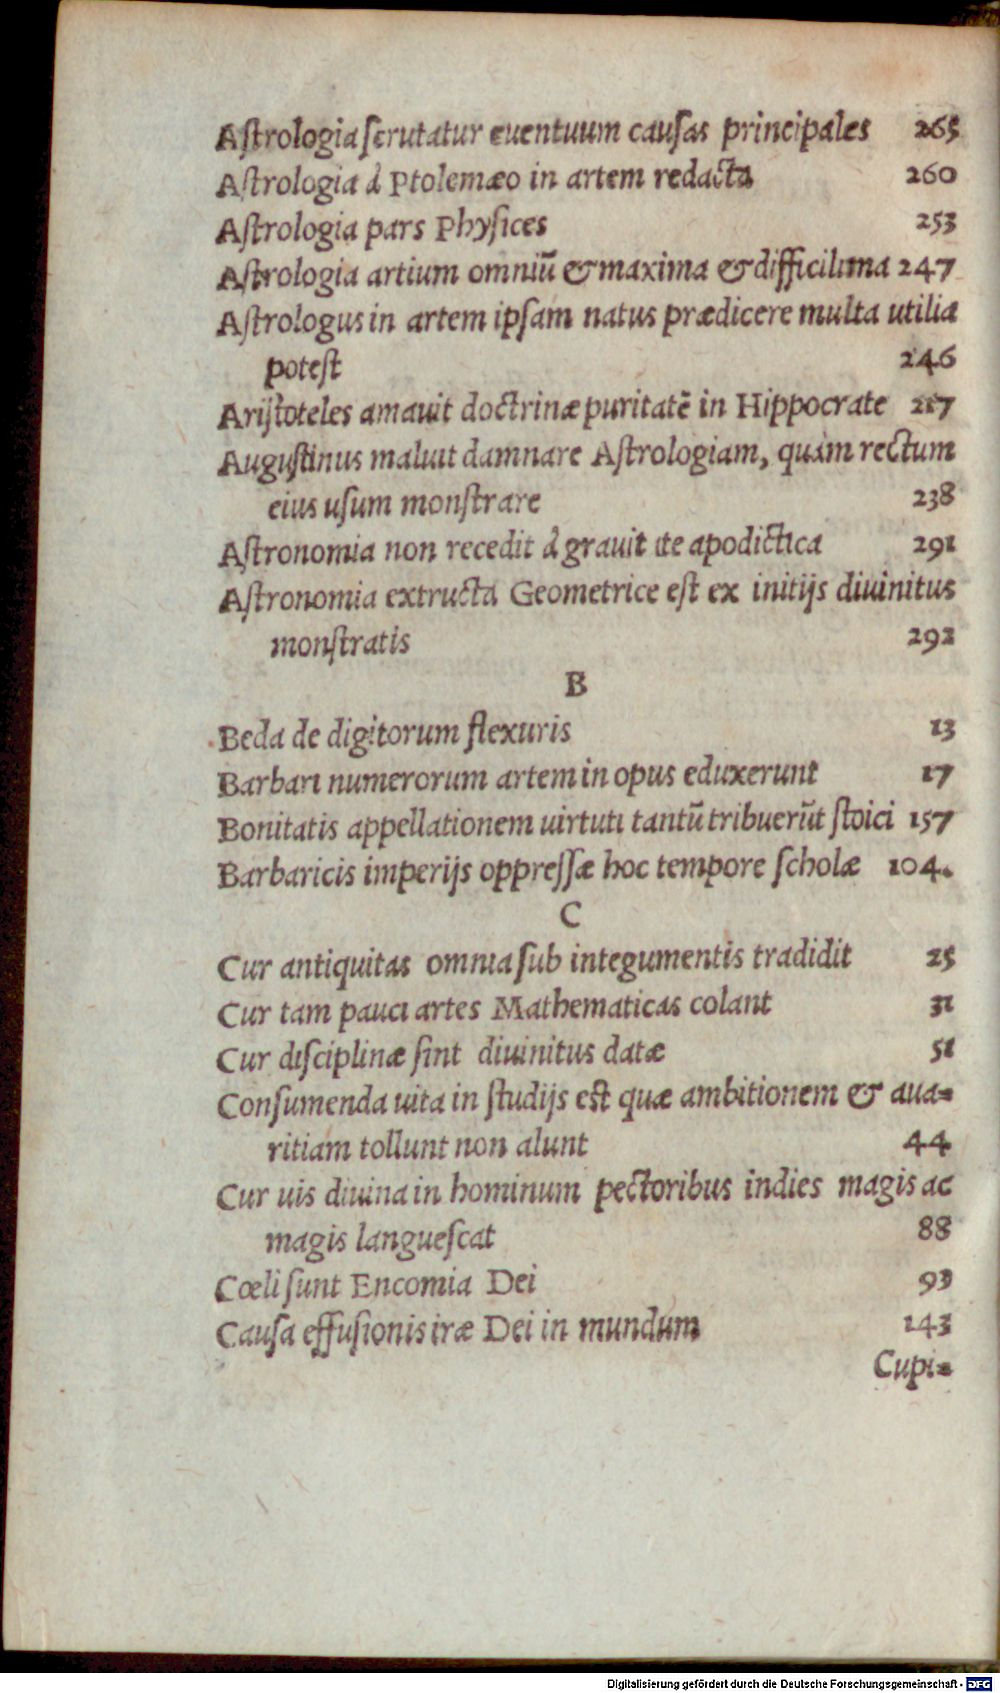 Aſtrologia ſcrutatur euentuum cauſas principales 265
Aſtrologia à Ptolemæo in artem redacta 260
Aſtrologia pars Phyſices 253
Aſtrologia artium omniũ & maxima & difficilima 247
Aſtrologus in artem ipſam natus prædicere multa utilia
poteſt 246
Ariſtoteles amauit doctrinæ puritatẽ in Hippocrate 217
Auguſtinus maluit damnare Aſtrologiam, quàm rectum
eius uſum monſtrare 238
Aſtronomia non recedit à grauitate apodictica 291
Aſtronomia extructa Geometrice eſt ex initijs diuinitus
monſtratis 292
B
Beda de digitorum flexuris 13
Barbari numerorum artem in opus eduxerunt 17
Bonitatis appellationem uirtuti tantũ tribuerũt ſtoici 157
Barbaricis imperijs oppreſſæ hoc tempore ſcholæ 104.
C
Cur antiquitas omnia ſub integumentis tradidit 25
Cur tam pauci artes Mathematicas colant 31
Cur diſciplinæ ſint diuinitus datæ 51
Conſumenda uita in ſtudijs eſt quæ ambitionem & aua=
ritiam tollunt non alunt 44
Cur uis diuina in hominum pectoribus indies magis ac
magis langueſcat 88
Cœli ſunt Encomia Dei 93
Cauſa effuſionis iræ Dei in mundum 143
Cupi=
Digitalisierung gefördert durch die Deutsche Forschungsgemeinschaft - DFG